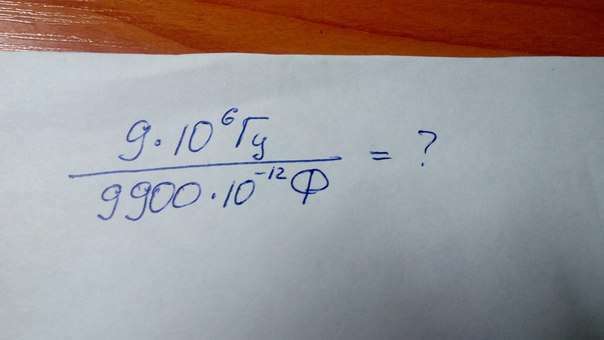 9·10⁶ Гц
9900·10⁻¹² Ф
= ?